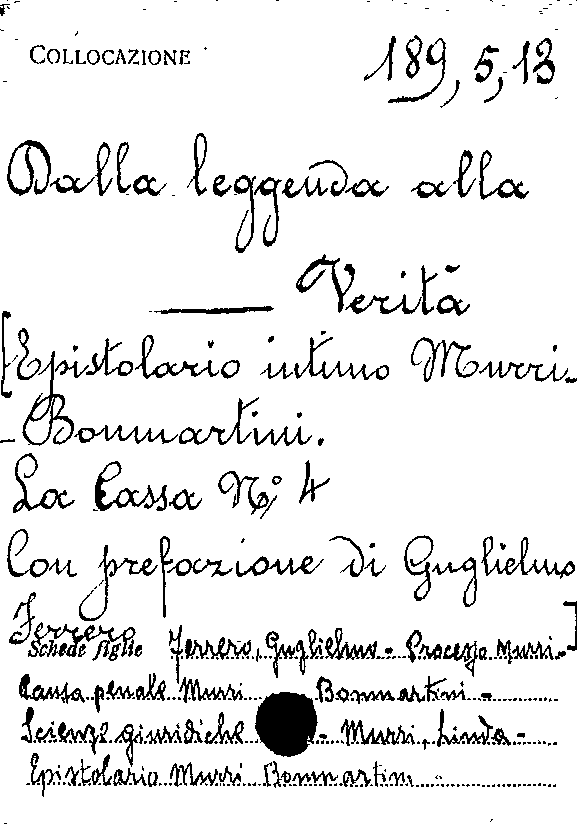 COLLOCAZIONE
189, 5, 13
Dalla leggenda alla
Verità
[Epistolario intimo Murri-
-Bonmartini.
La Cassa N.° 4
Con prefazione di Guglielmo
Ferrero]
Schede figlie Ferrero, Guglielmo - Processo Murri-
Causa penale Murri Bonmartini -
Scienze giuridiche - Murri, Linda -
Epistolario Murri Bonmartini -